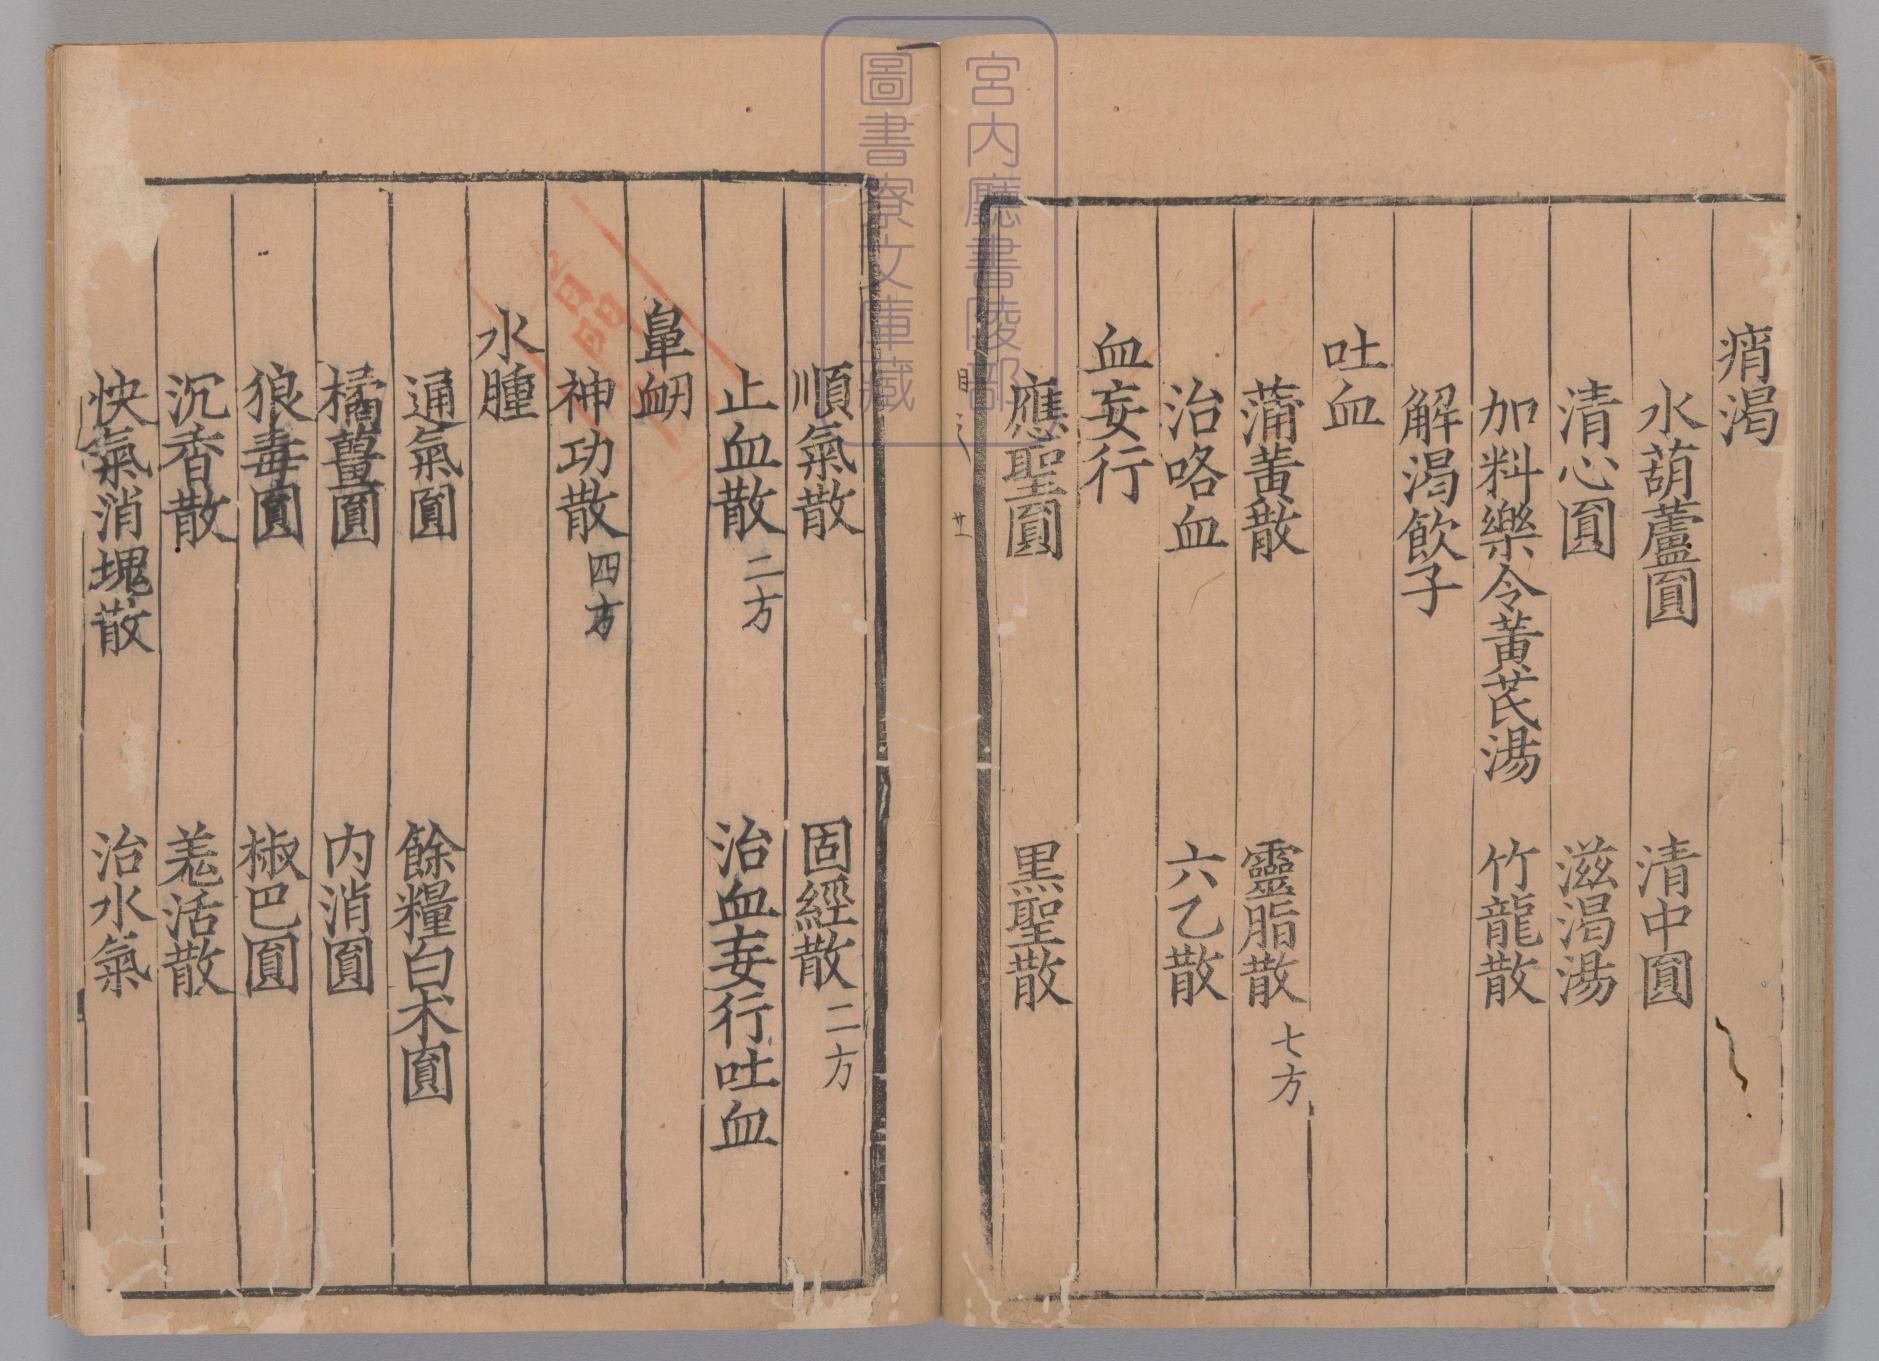 痟渴
水葫蘆圎　清中圎
清心圎　滋渴湯
加料樂令黃芪湯　竹龍散
解渴飲子
吐血
蒲黃散　靈脂散七方
治咯血　六乙散
血妄行
應聖圎　黑聖散
順氣散　固經散二方
止血散二方　治血妄行吐血
鼻衂
神功散四方
水腫
通氣圎　餘糧白朮圎
橘薑圎　內消圎
狼毒圎　椒巴圎
沉香散　羌活散
快氣消塊散　治水氣
宮內廳書陵部
圖書寮文庫藏